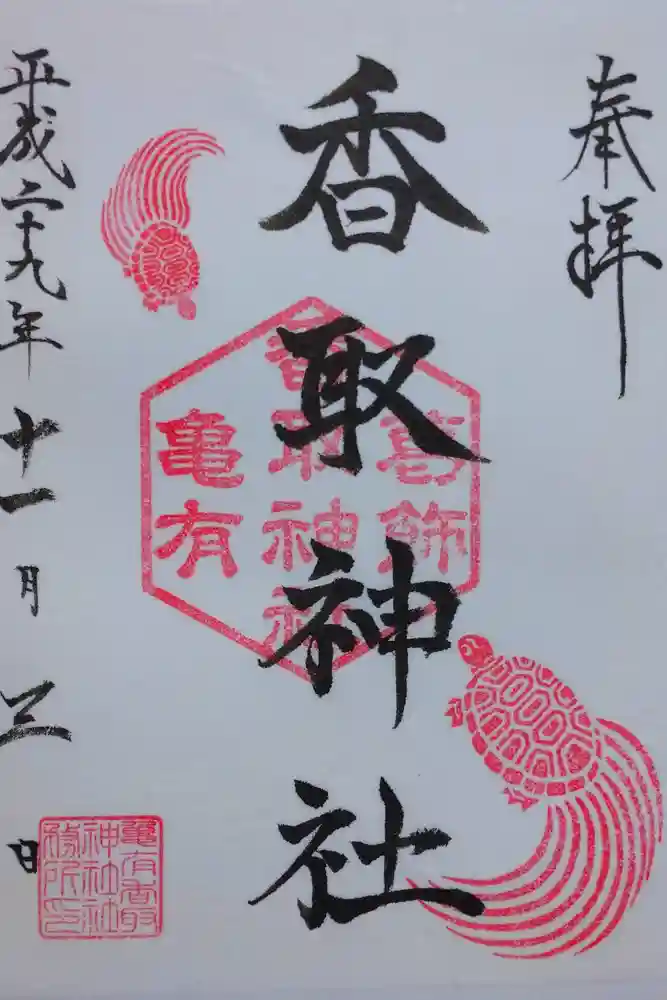 奉拝
葛飾
香取神社
亀有
香取神社
平成二十九年十一月三日
亀有香取
神社社
務所印